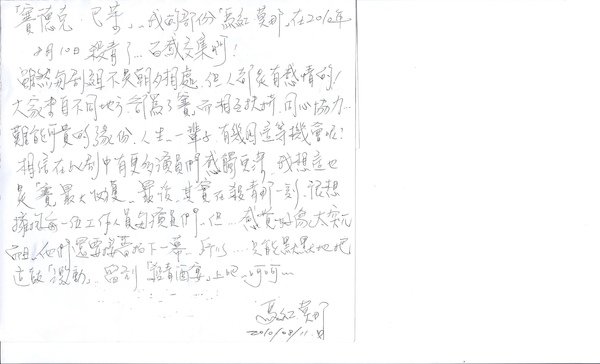 「賽德克‧巴萊」…我的部份「馬紅莫那」在2010年
8月10日殺青了…百感交集啊!
雖然每劇組不是朝夕相處…但人都是有感情的!
大家來自不同地方都為了「賽」而相互扶持…同心協力…
難能可貴的緣份…人生…一輩子…有幾回這等機會呢?
相信在此劇中有更多演員們感觸更深…我想這也
是「賽」最大收穫…最後…其實在殺青那一刻…很想
擁抱每一位工作人員與演員們…但…感覺好像太突兀
而且他們還要接著拍下一幕…所以…只能默默地把
這股「激動」…留到「殺青酒宴」上吧…呵呵…
馬紅莫那
2010/08/11.日